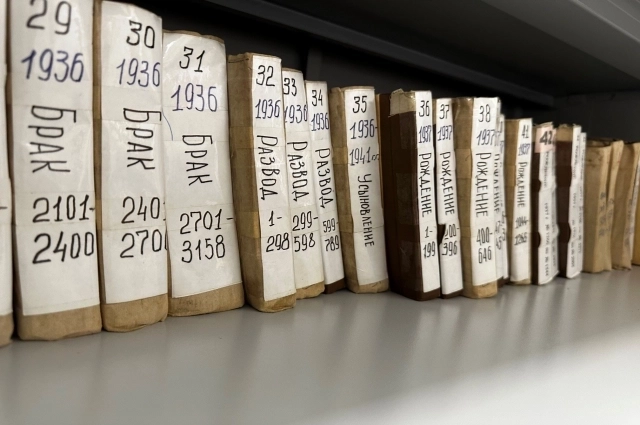 29
1936
БРАК
2101-
2400
30
1936
БРАК
240
270
31
1936
БРАК
2701-
3158
32
1936
РАЗВОД
1-
298
33
1936
РАЗВОД
299-
598
34
1936
РАЗВОД
599-
789
35
1936-
1941гг
УСЫНОВЛЕНИЕ
36
1937
РОЖДЕНИЕ
1-
199
37
1937
РОЖДЕНИЕ
200-
396
38
1937
РОЖДЕНИЕ
400-
646
41
1937
РОЖДЕНИЕ
42